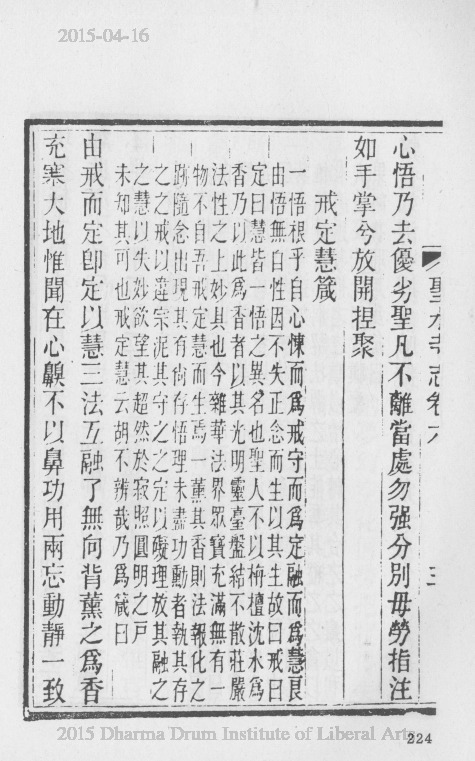 2015-04-16
聖水寺志卷六
三
心悟乃去優劣聖凡不離當處勿强分別毋勞指注
如手掌兮放開捏聚
戒定慧箴
一悟根乎自心悚而爲戒守而爲定融而爲慧良
由悟無自性因不失正念而生以其生故曰戒曰
定曰慧皆一悟之異名也聖人不以栴檀沈水爲
香乃以此爲香者以其光明靈臺盤結不散莊嚴
法性之上妙具也今雜華法界眾寶充滿無有一
物不自吾戒定慧而生焉一薰其香則法報化之
跡隨念出現其有尙存悟理未盡功動者執其存
之之戒以違宗泥其守之之定以礙理放其融之
之慧以失妙欲望其超然於寂照圓明之戶
未知其可也戒定慧云胡不辨哉乃爲箴曰
由戒而定卽定以慧三法互融了無向背薰之爲香
充塞大地惟聞在心齅不以鼻功用兩忘動靜一致
2015 Dharma Drum Institute of Liberal Arts
224